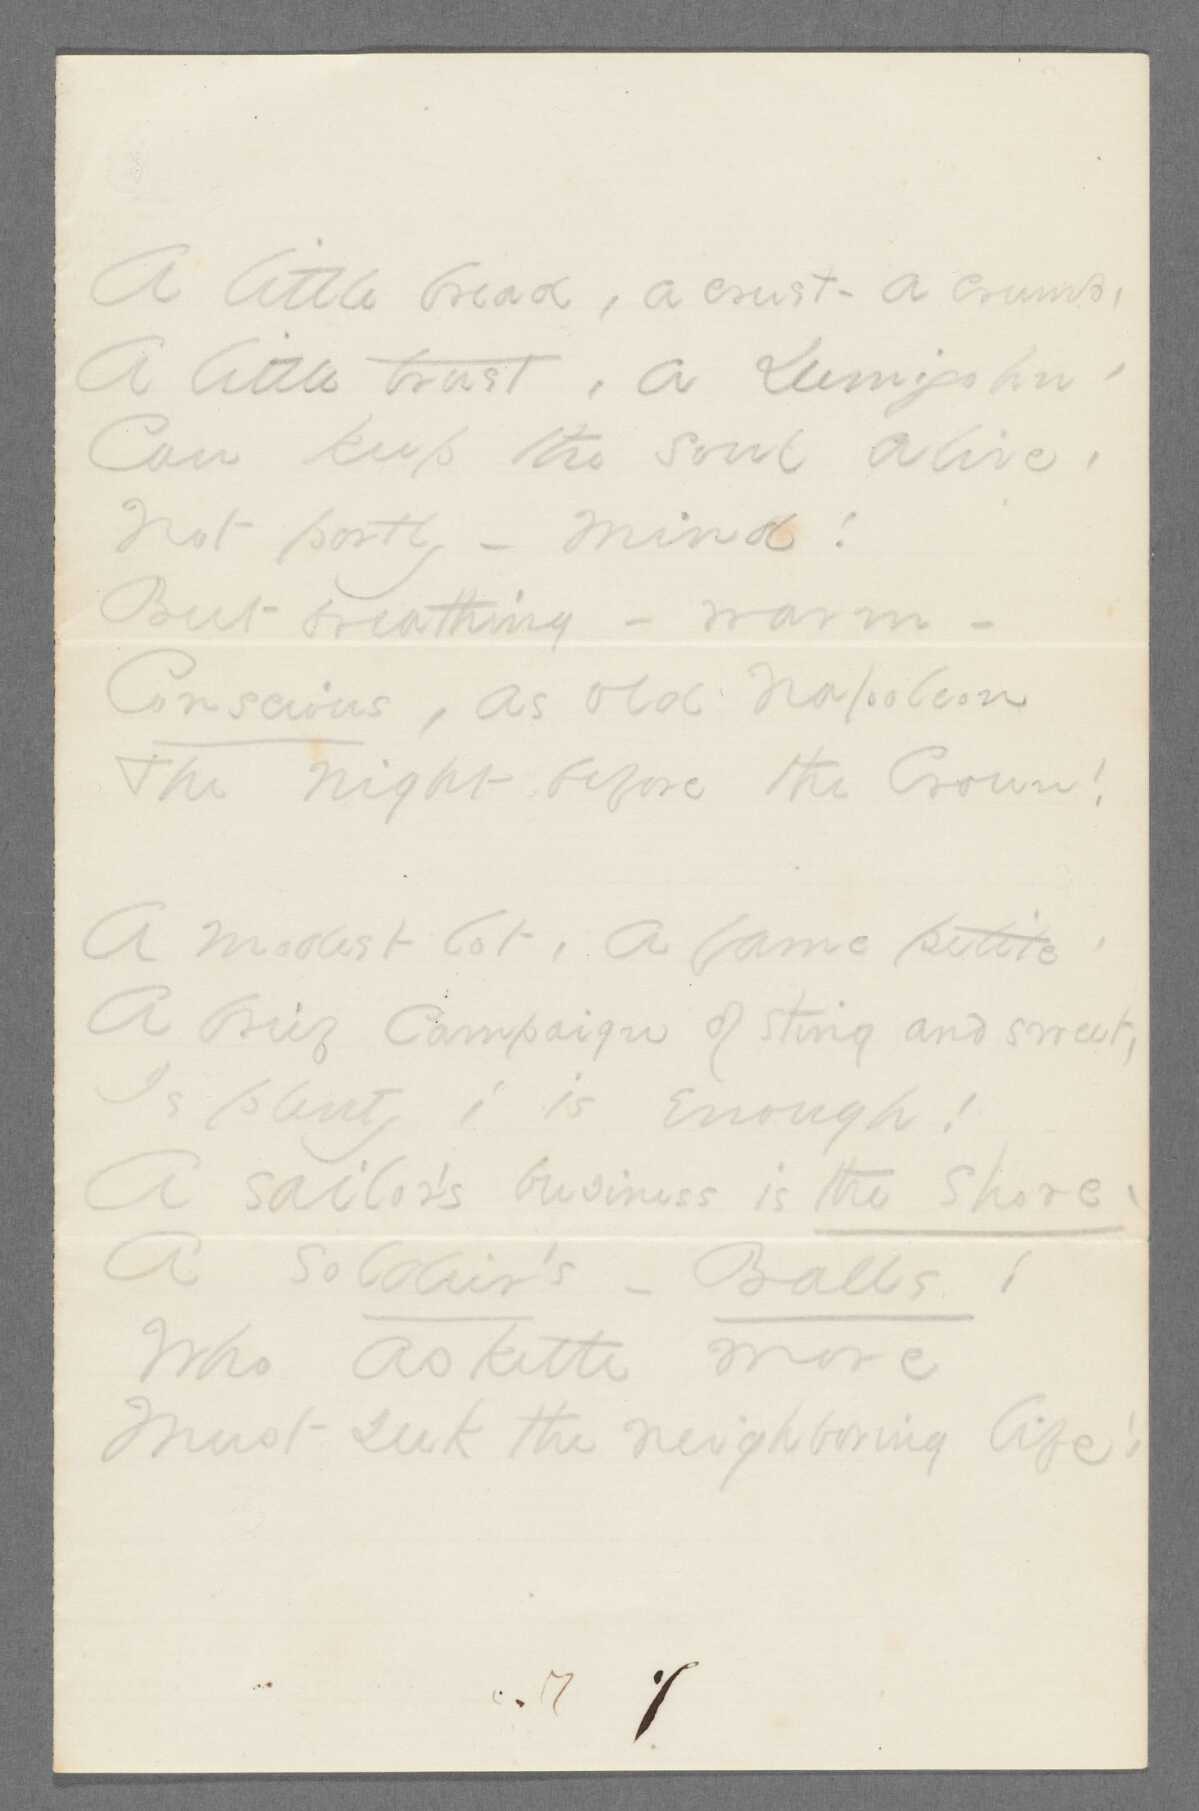 A little bread, a crust - a crumb,
A little trust, a demijohn,
Can keep the soul alive,
Not portly - mind!
But breathing - warm -
Conscious, as old Napoleon
The night before the Crown!
A modest lot, A fame petite,
A brief Campaign of sting and sweet,
Is plenty! is enough!
A sailor's business is the shore,
A soldier's - Balls!
Who asketh more
Must seek the neighboring life!